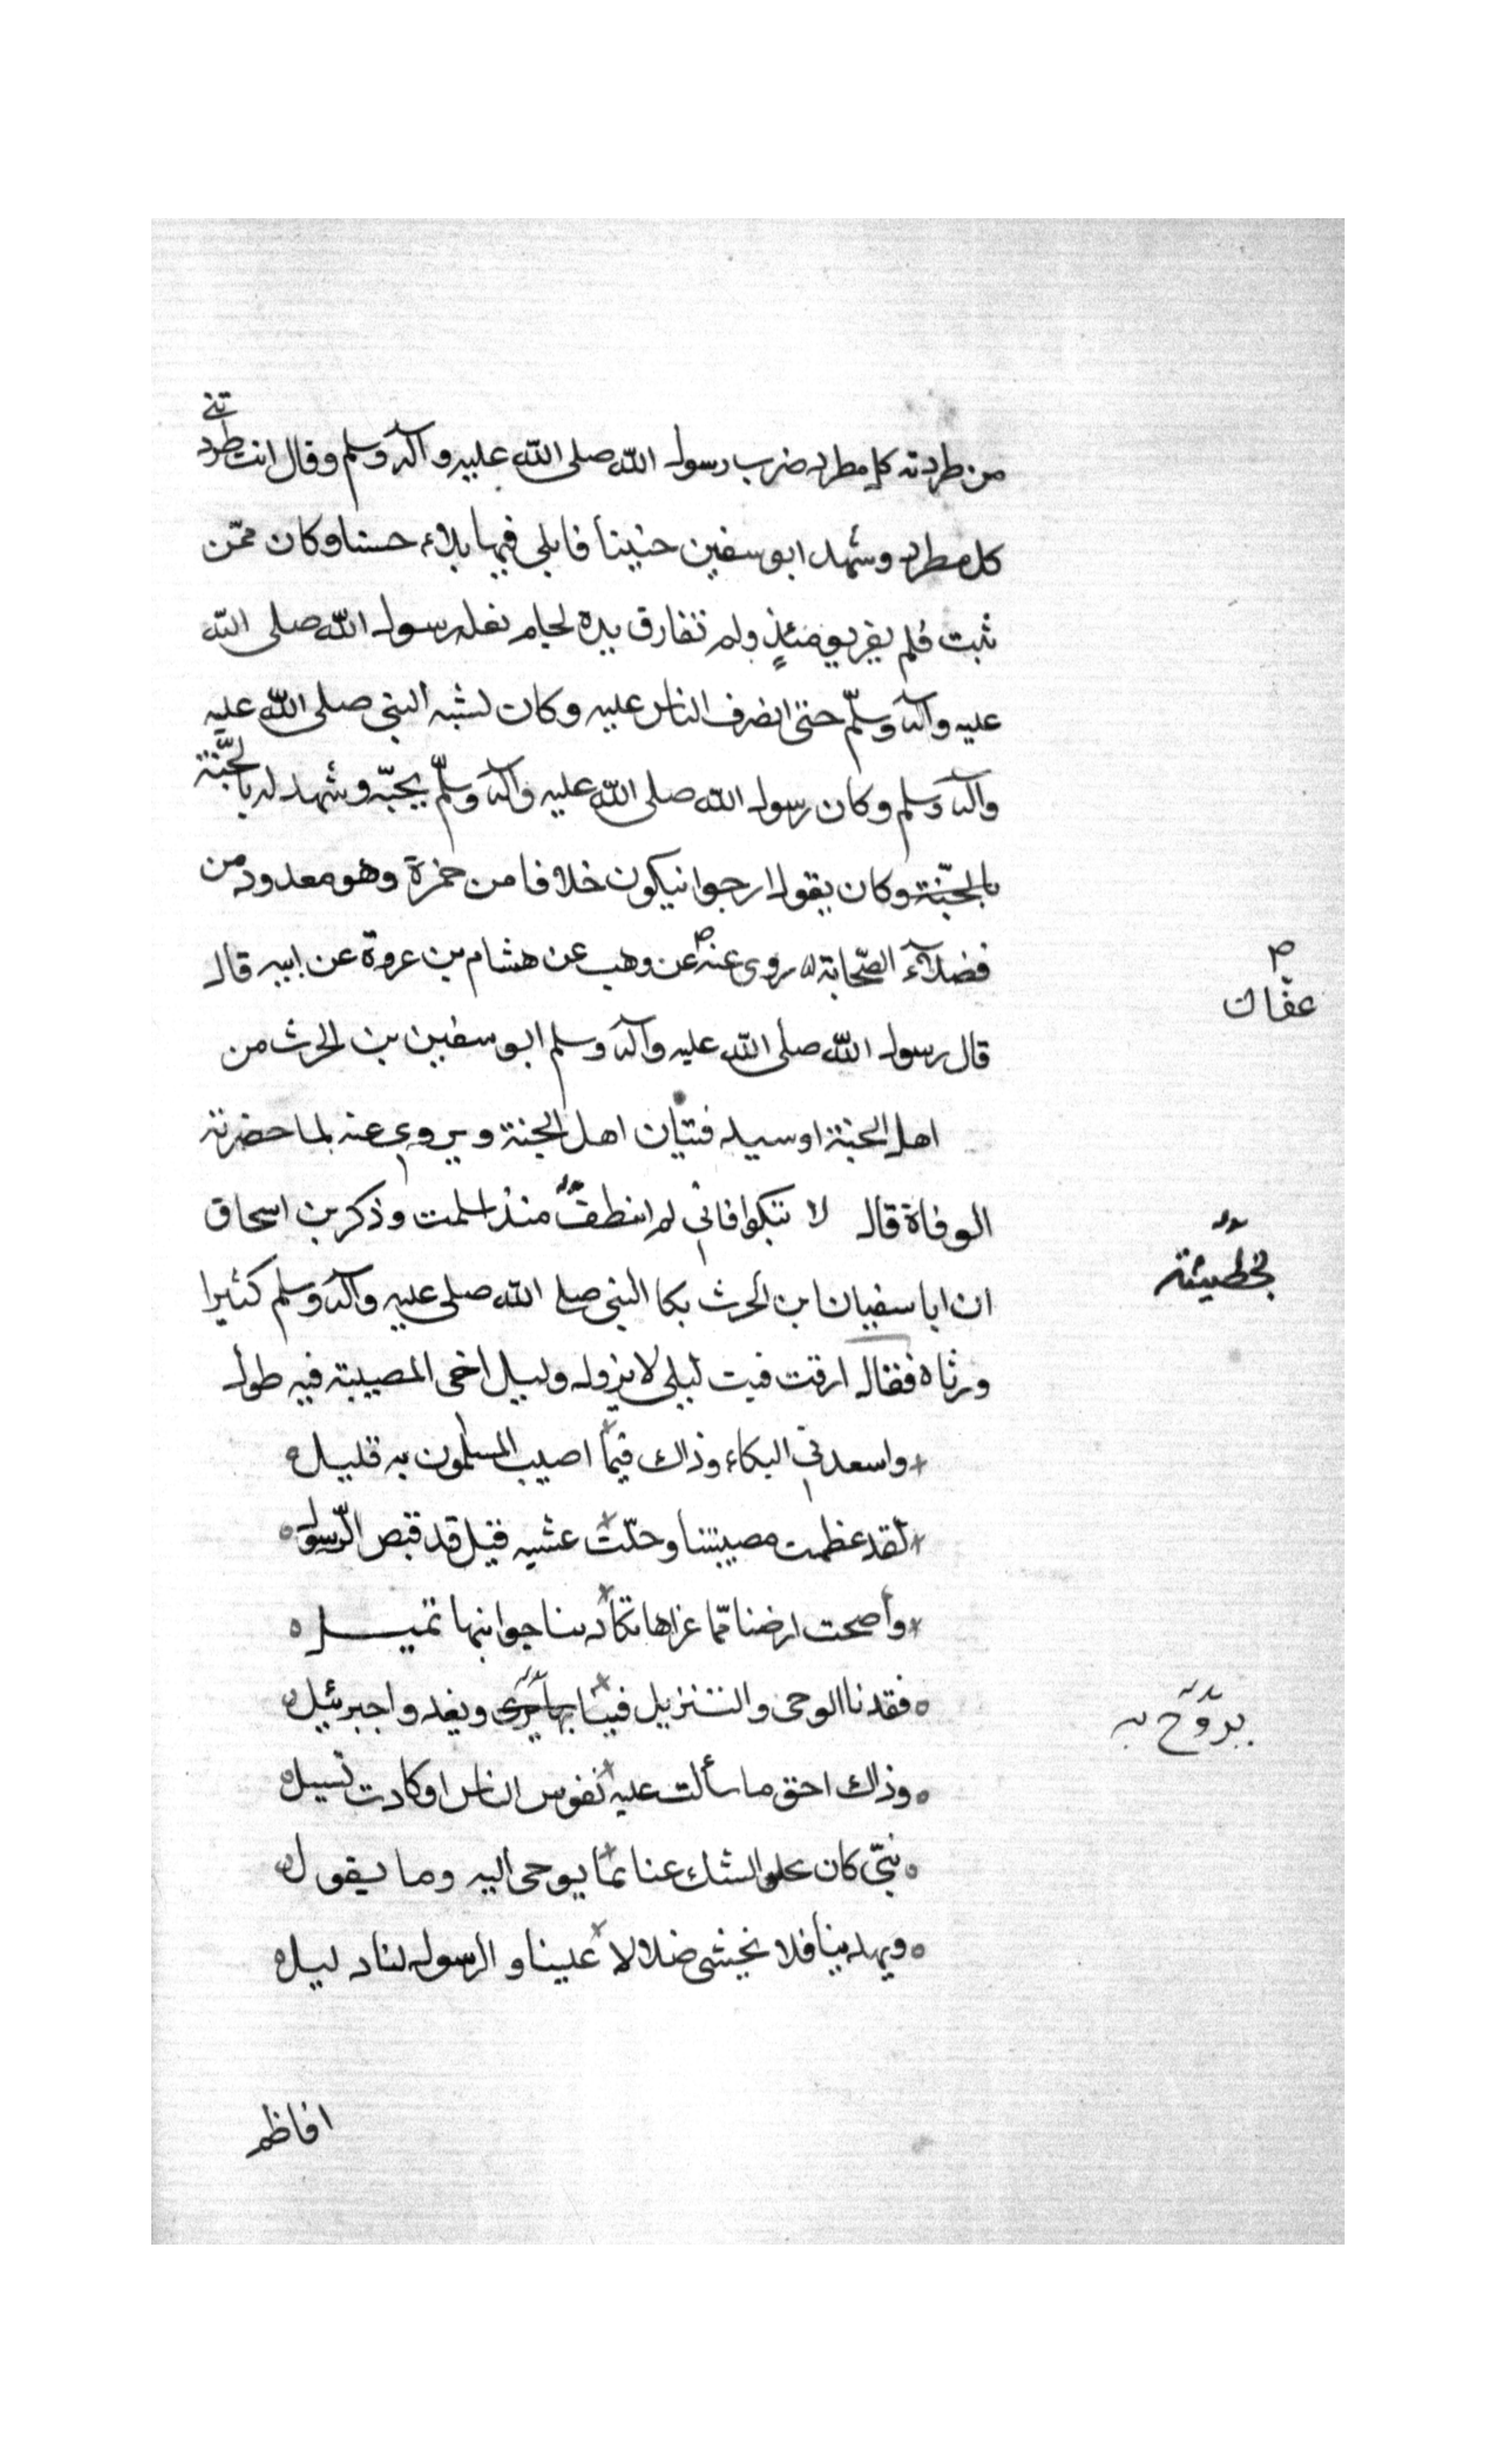 من طردته كل مطرد ضرب رسول الله صلى الله عليه وآله وسلم وقال انت طرد
تني
كل مطرد وشهد ابو سفين حنينا فابلى فيها بلاء حسنا وكان ممّن
ثبت فلم يفر يومئذٍ ولم تفارق يده لجام نعله رسول الله صلى الله
عليه وآله وسلّم حتى انصرف الناس عليه وكان يشبه النبي صلى الله عليه
وآله وسلم وكان رسول الله صلى الله عليه وآله وسلّم يحبّه وشهد له بالجنّة
بالجنّة وكان يقول ارجوا نيكون خلافا من حمزة وهو معدود من
فضلآء الصّحابة روى عنه عن وهب عن هشام بن عروة عن ابيه قال
ص
عفان
قال رسول الله صلى الله عليه وآله وسلم ابو سفين بن الحرث من
اهل الجنة او سيد فتيان اهل الجنة ويروى عنه لما حضرته
الوفاة قال لا تبكوا فاني لم انطف منذ اسلمت وذكر بن اسحاق
بخطيئة
ان ابا سفيان ابن الحرث بكا النبي صلى الله صلى عليه وآله وسلم كثيرا
ورثاه فقال ارقت فبت ليلى لا يزول وليل أخى المصيبة فيه طول
واسعدني البكاء وذاك فيما اصيب المسلمون به قليل
لقد عظمت مصيبتنا وحلّت عشيه قيل قد قبص الرّسول
وأصحت ارضنا ممّا عراها تكاد بنا جوابنها تميل
فقدنا الوحى والتنزيل فينا بها يجرى ويغدوا جبرئيل
يروّح به
وذاك احق ما سألت عليه نفوس الناس اوكادت تسيل
نبيّ كان يجلو الشك عنا بما يوحى اليه وما يقول
ويهدينا فلا نخشى ضلالا علينا والرسول لنا دليل
افاظم